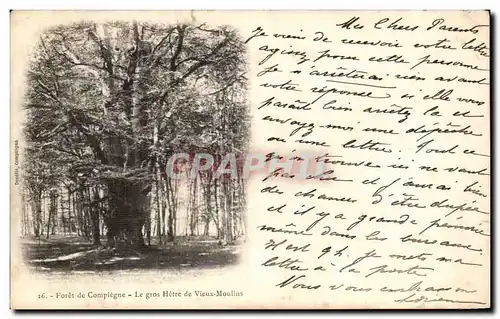 Mes Chers Parents
Je viens de recevoir votre lettre
agissez pour cette personne
Je n'arrêterai rien avant
votre réponse si elle vous
paraîtra bien arrêtez la et
envoyez moi une dépêche
une lettre. Tout ce
trouve ici ne vaut
pas et j'aurai bien
de chances d'être dépêché
et il y a grande première
même dans les bureaux.
Il est 9h. je mets ma
lettre à la poste
Nous vous embrassons
CPARAMA
Decelle, Compiègne.
16. - Forêt de Compiègne - Le gros Hêtre de Vieux-Moulins